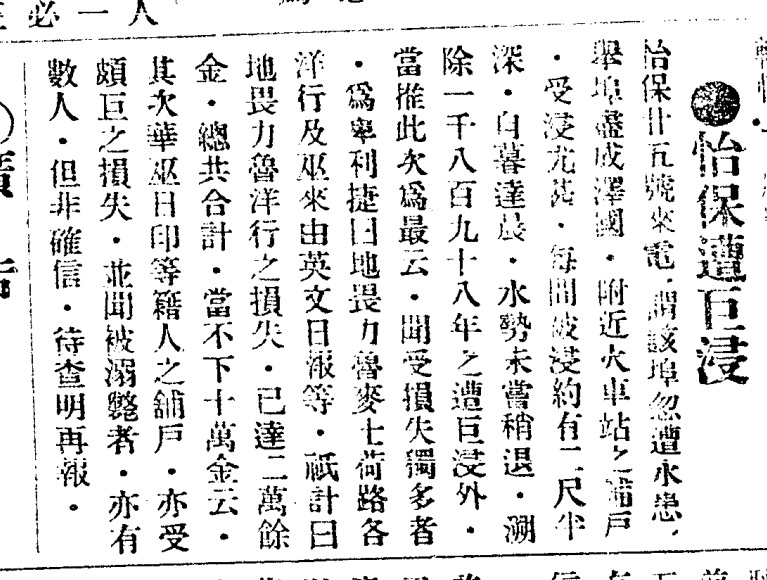 人一必
●怡保遭巨浸
怡保廿五號來電．謂該埠忽遭水患．
舉埠盡成澤國．附近火車站之舖戶
．受浸尤甚．每間被浸約有二尺半
深．自暮達晨．水勢未嘗稍退．溯
除一千八百九十八年之遭巨浸外．
當推此次爲最云．聞受損失獨多者
．爲畢利捷日地畏力魯麥士荷路各
洋行及巫來由英文日報等．祇計日
地畏力魯洋行之損失．已達二萬餘
金．總共合計．當不下十萬金云．
其次華巫日印等籍人之舖戶．亦受
頗巨之損失．並聞被溺斃者．亦有
數人．但非確信．待查明再報。